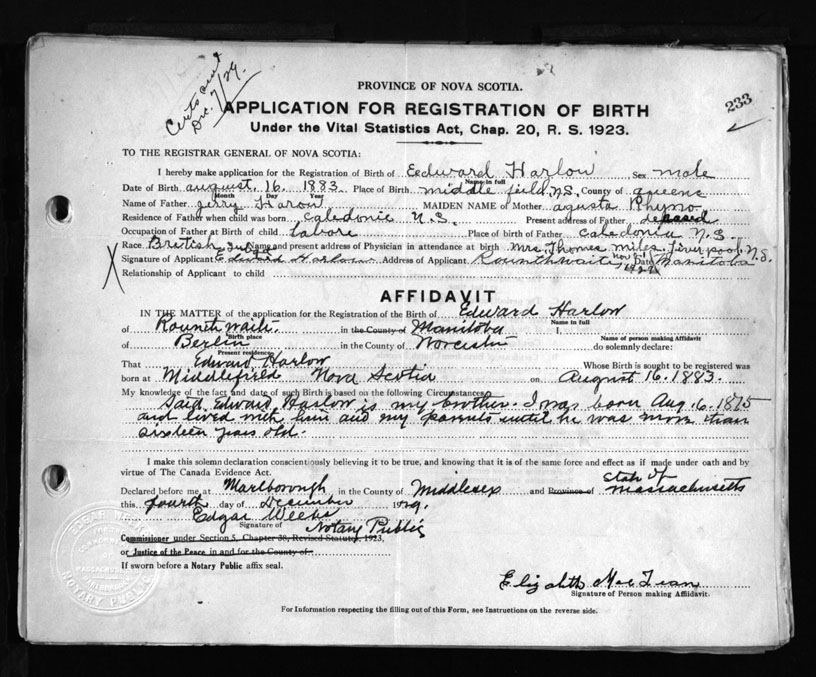 Certs sent
Dec. 7/29.
PROVINCE OF NOVA SCOTIA.
APPLICATION FOR REGISTRATION OF BIRTH
233
Under the Vital Statistics Act, Chap. 20, R. S. 1923.
TO THE REGISTRAR GENERAL OF NOVA SCOTIA:
I hereby make application for the Registration of Birth of Edward Harlow Sex male
Name in full
Date of Birth august. 16. 1883. Place of Birth middle field, N.S. County of queens
Month Day Year
Name of Father Jerry Harow MAIDEN NAME of Mother agusta Rhyno
Residence of Father when child was born Caledonia N.S. Present address of Father
Occupation of Father at Birth of child labore Place of birth of Father Caledonia N.S.
Race British Name and present address of Physician in attendance at birth Mrs. Thomes miles Liverpool. N.S.
Signature of Applicant Edward Harlow Address of Applicant Rounthwaite, Date Manitoba
Relationship of Applicant to child
AFFIDAVIT
IN THE MATTER of the application for the Registration of the Birth of Edward Harlow
Name in full
of Rouneth waite. in the County of Manitoba I,
Birth place Name of person making Affidavit
of Berlin in the County of Worcester do solemnly declare:
Present residence
That Edward Harlow Whose Birth is sought to be registered was
born at Middlefield Nova Scotia on August 16. 1883.
My knowledge of the fact and date of such Birth is based on the following Circumstances:
Said Edward Harlow is my brother. I was born Aug. 6. 1875
and lived with him and my parents until he was more than
sixteen years old.
I make this solemn declaration conscientiously believing it to be true, and knowing that it is of the same force and effect as if made under oath and by
virtue of The Canada Evidence Act.
State of
Declared before me at Marlborough in the County of Middlesex and Province of Massachusetts
this fourth day of December 1929.
Edgar Weeks
Signature of Notary Public
Commissioner under Section 5, Chapter 38, Revised Statutes, 1923,
or Justice of the Peace in and for the County of
If sworn before a Notary Public affix seal.
NOTARY PUBLIC
Elizabeth MacLean
Signature of Person making Affidavit.
For Information respecting the filling out of this Form, see Instructions on the reverse side.